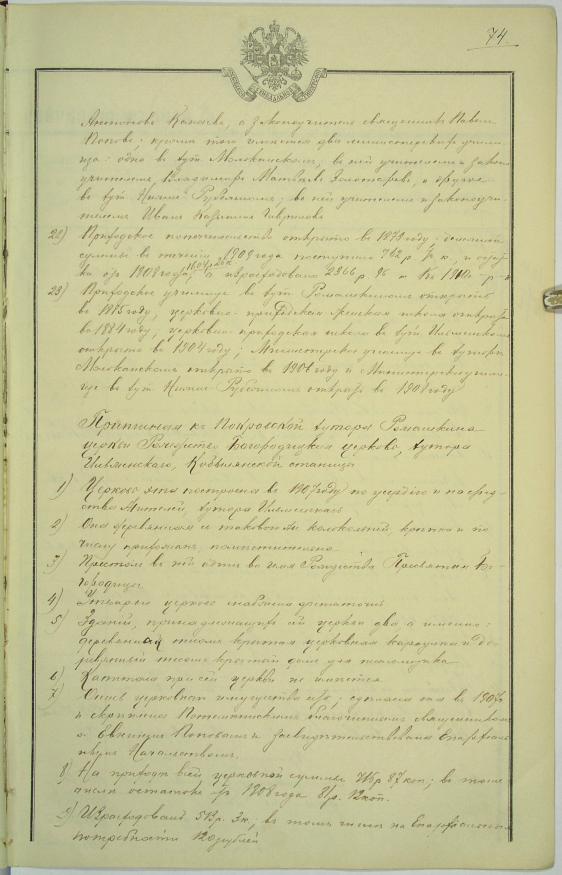 74
Антонова Канаева, а законоучитель священникъ Павелъ
Поповъ; кромѣ того имѣется два министерскихъ училища:
одно въ хут. Молоканскомъ, въ ней учителемъ и законо
учителемъ Владиміръ Матвѣевъ Золотаревъ, а другое
въ хут. Нижне-Рубашномъ, въ ней учителемъ и законоучи-
телемъ Иванъ Гавриловъ
22) Приходское попечительство открыто въ 1873 году, денежной
суммы въ теченіи 1909 года поступило 762 р. к., и остат
ка отъ 1908 года 1604 р., израсходовано 2366 р. 96 к. Къ 1910 г. р. к.
23) Приходское училище въ хут. Ромашкиномъ открыто
въ 1875 году, церковно-приходская женская школа открыта
въ 1884 году; церковно-приходская школа въ хут.
открыто въ 1904 году; Министерское училище въ хуторѣ
Молоканскомъ открыто въ 1906 году и Министерское учили-
ще въ хут. Нижне-Рубашномъ открыто въ 1908 году
Приписная къ Покровской хутора Ромашкина
церкви Рождество-Богородицкая церковь, хутора
Кобылянской станицы
1) Церковь эта построена въ 1907 году по усердію и на сред-
ства жителей, хутора
2) Она деревянная съ таковой же колокольней, крѣпка и по
числу прихожанъ помѣстительна
3) Престолъ въ ней одинъ во имя Рождества Пресвятой Бо-
городицы
4) Утварью церковь снабжена достаточно
5) Зданій, принадлежащихъ сей церкви два, а именно:
деревянная тесомъ крытая церковная караулка и де-
ревянный тесомъ крытый домъ для псаломщика
6) Капитала при сей церкви не имѣется
7) Опись церковному имуществу есть; сдѣлана она въ 1907 г.
и скрѣплена Потемкинскимъ благочиннымъ священникомъ
о. Евгеніемъ Поповымъ и засвидѣтельствована Епархіаль
нымъ Начальствомъ.
8) На приходѣ всей церковной суммы р. 87 коп.; въ томъ
числѣ остатокъ отъ 1908 года 81 р. 12 коп.
9) Израсходовано р. 3 к.; въ томъ числѣ на Епархіальныя
потребности 120 рублей